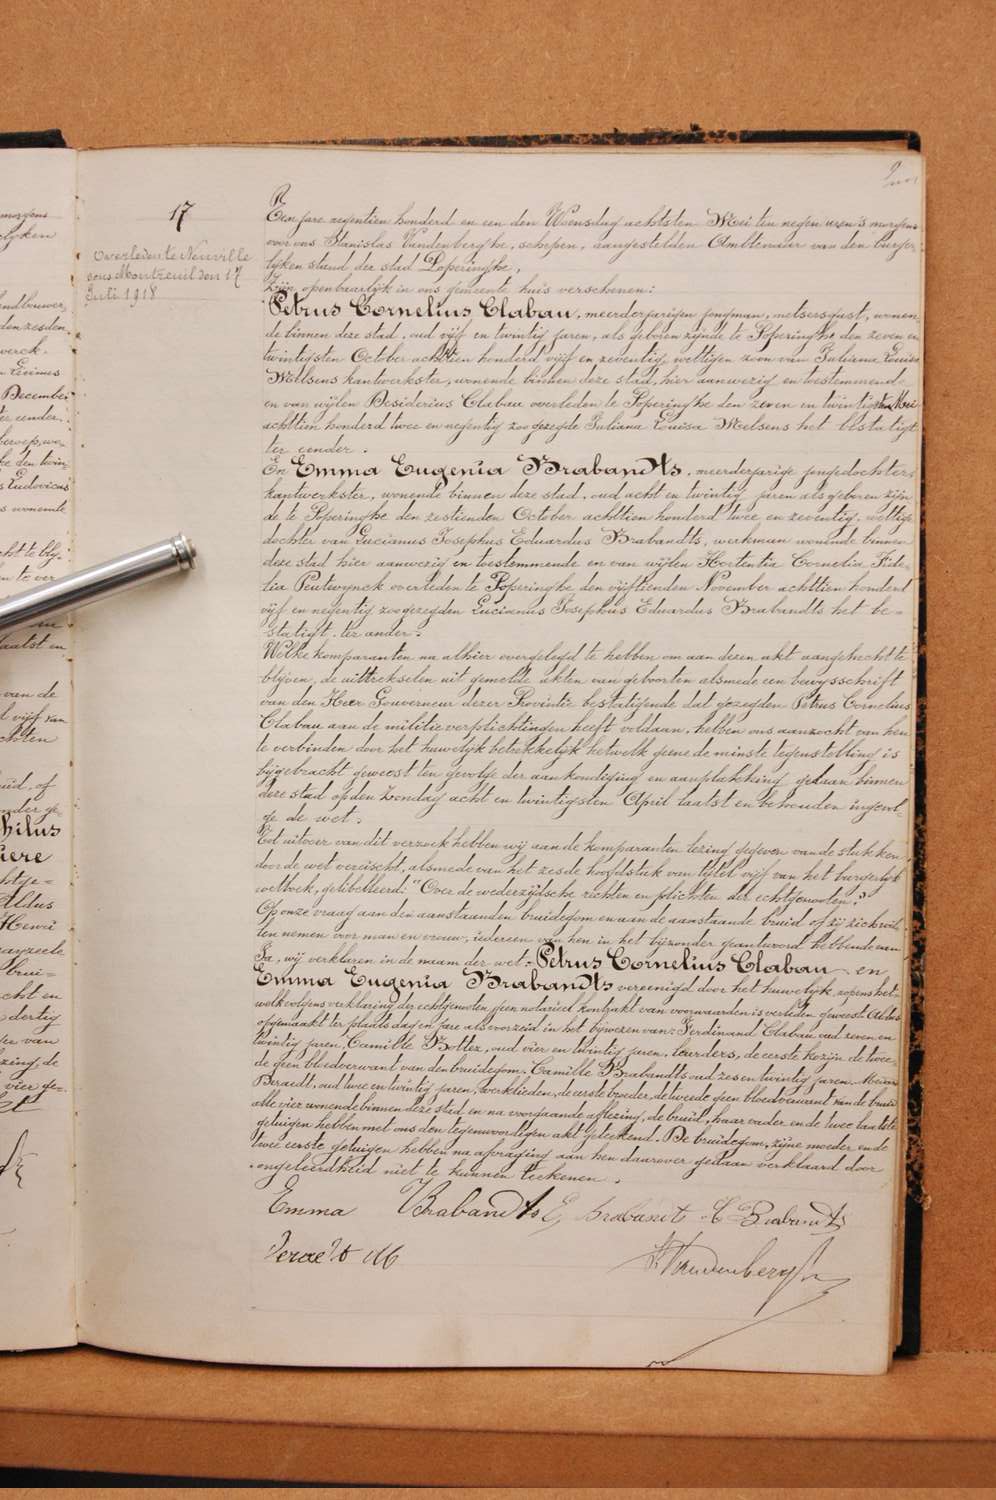 17
Overleden te Neuville
sous Montreuil den 17
Juli 1918
Een jare negentien honderd en een den Woensdag achtsten Mei ten negen uren 's morgens
voor ons Stanislas Vandenberghe, schepen, aangestelden Ambtenaar van den burger-
lijken stand der stad Poperinghe,
Zijn openbaarlijk in ons gemeente huis verschenen:
Petrus Cornelius Clabau, meerderjarigen jongman, metsersgast, wonen-
de binnen deze stad, oud vijf en twintig jaren, als geboren zijnde te Poperinghe den zeven en
twintigsten October achttien honderd vijf en zeventig, wettigen zoon van Juliana Louisa
Melsens kantwerkster, wonende binnen deze stad, hier aanwezig en toestemmende
en van wijlen Desiderius Clabau overleden te Poperinghe den zeven en twintigsten Mei
achttien honderd twee en negentig zoo gezegde Juliana Louisa Melsens het bestatigt
ter eender.
En Emma Eugenia Brabandts, meerderjarige jongedochter,
kantwerkster, wonende binnen deze stad, oud acht en twintig jaren als geboren zijn-
de te Poperinghe den zestienden October achttien honderd twee en zeventig, wettige
dochter van Lucianus Josephus Eduardus Brabandts, werkman wonende binnen
deze stad hier aanwezig en toestemmende en van wijlen Hortentia Cornelia Fide-
lia Peutwynck overleden te Poperinghe den vijftienden November achttien honderd
vijf en negentig zoo gezegden Lucianus Josephus Eduardus Brabandts het be-
statigt ter ander.
Welke komparanten na alhier overgelegd te hebben om aan dezen akt aangehecht te
blijven, de uittrekselen uit gemelde akten van geboorten alsmede een bewysschrift
van den Heer Gouverneur dezer Provintie bestatigende dat gezegden Petrus Cornelius
Clabau aan de militie verplichtingen heeft voldaan, hebben ons aanzocht van hen
te verbinden door het huwelyk betrekkelyk hetwelk geene de minste tegenstelling is
bijgebracht geweest ten gevolge der aankondiging en aanplakking gedaan binnen
deze stad op den Zondag acht en twintigsten April laatst en behouden ingevol-
ge de wet.
Tot uitvoer van dit verzoek hebben wij aan de komparanten lezing gegeven van de stukken
door de wet vereischt, alsmede van het zesde hoofdstuk van tijtel vijf van het burgerlyk
wetboek, gelibelleerd: "Over de wederzijdsche rechten en plichten der echtgenooten."
Op onze vraag aan den aanstaanden bruidegom en aan de aanstaande bruid of zij zich wil-
len nemen voor man en vrouw, iedereen van hen in het bijzonder geantwoord hebbende van
Ja, wij verklaren in de naam der wet: Petrus Cornelius Clabau en
Emma Eugenia Brabandts vereenigd door het huwelyk, nopens het-
welk volgens verklaring der echtgenoten geen notarieel kontrakt van voorwaarden is verleden geweest. Aldus
opgemaakt ter plaats dag en jare als voorzeid in het bijwezen van: Ferdinand Clabau oud zeven en
twintig jaren, Camille Bottez, oud vier en twintig jaren, leurders, de eerste kozijn de twee-
de geen bloedverwant van den bruidegom. Camille Brabandts oud zes en twintig jaren
Beraedt, oud twee en twintig jaren, werklieden, de eerste broeder, de tweede geen bloedverwant van de bruid
alle vier wonende binnen deze stad, en na voorgaande aflezing, de bruid, haar vader en de twee laatste
getuigen hebben met ons den tegenwoordigen akt geteekend. De bruidegom, zijne moeder en de
twee eerste getuigen hebben na afvraging aan hen daarover gedaan verklaard door
ongeleerdheid niet te kunnen teekenen.
Emma Brabandts E, Brabandt C Brabandts
S. Vandenberghe